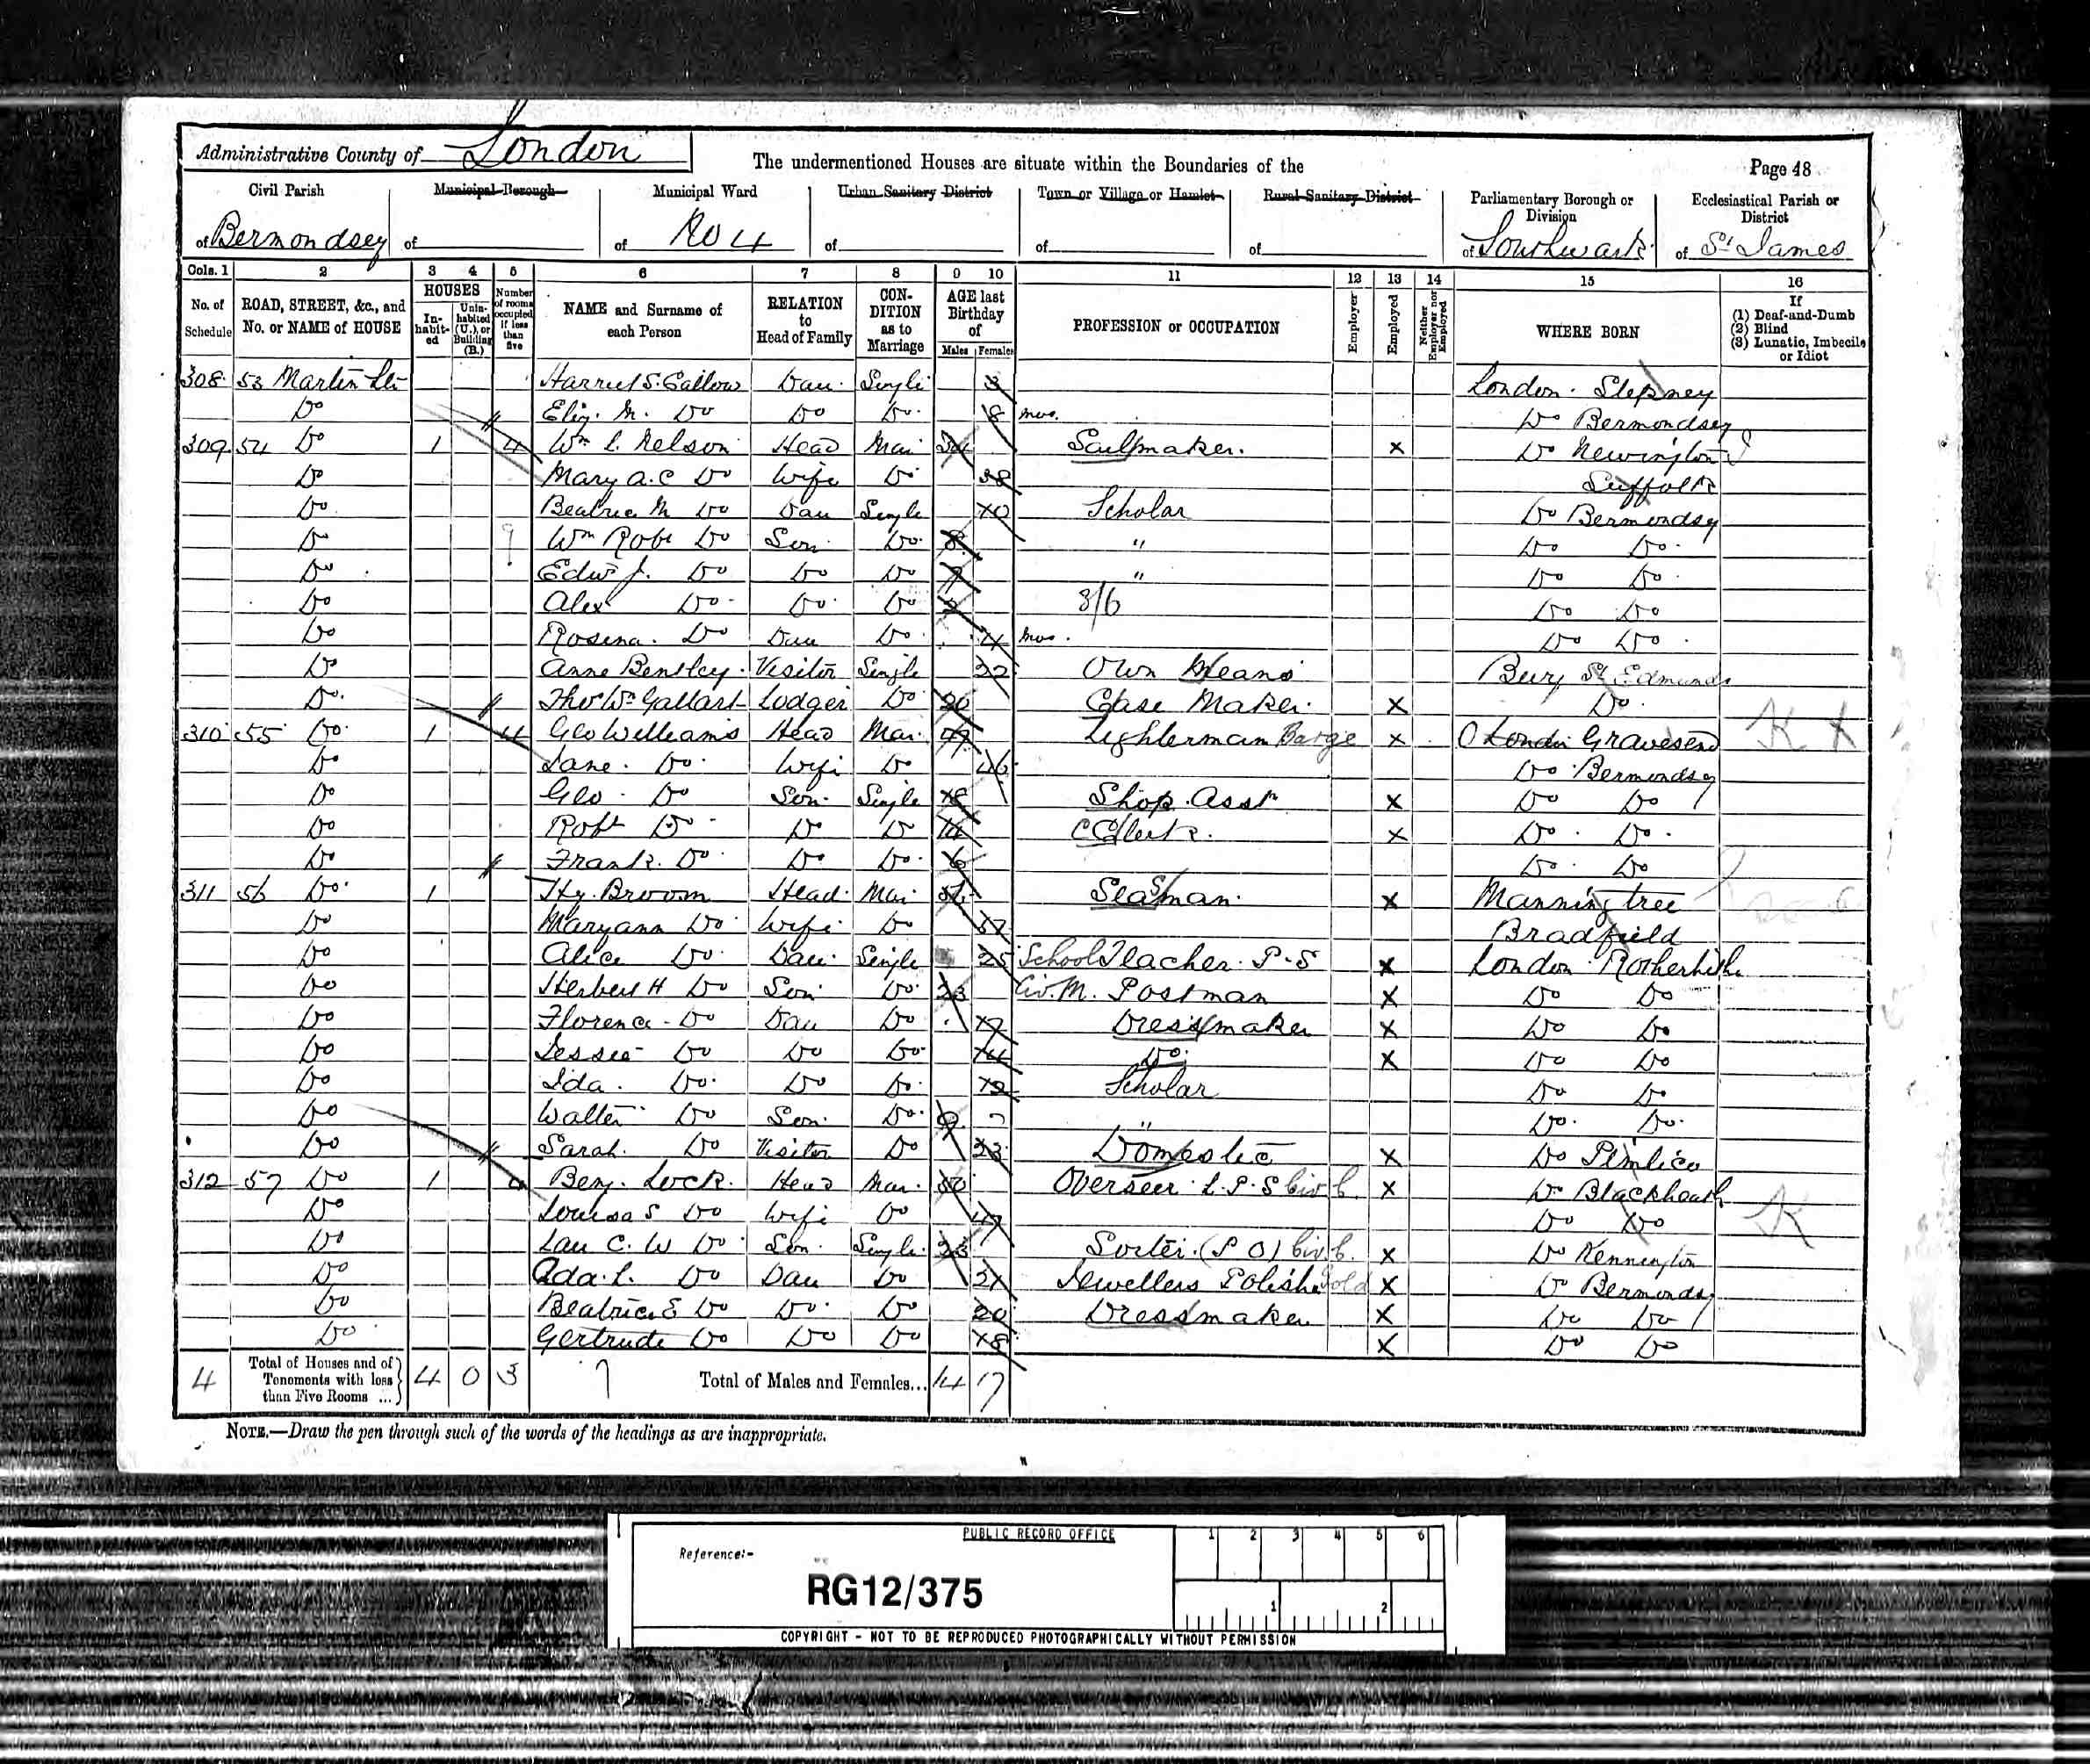 Administrative County of London
The undermentioned Houses are situate within the Boundaries of the
Page 48
Civil Parish of Bermondsey
Municipal Borough of
Municipal Ward of No 4
Urban Sanitary District of
Town or Village or Hamlet of
Rural Sanitary District of
Parliamentary Borough or Division of Southwark
Ecclesiastical Parish or District of St James
Cols. 1 2 3 4 5 6 7 8 9 10 11 12 13 14 15 16
No. of Schedule
ROAD, STREET, &c., and No. or NAME of HOUSE
HOUSES
In-habit-ed
Unin-habited (U.), or Building (B.)
Number of rooms occupied if less than five
NAME and Surname of each Person
RELATION to Head of Family
CON-DITION as to Marriage
AGE last Birthday of
Males Females
PROFESSION or OCCUPATION
Employer
Employed
Neither Employer nor Employed
WHERE BORN
If
(1) Deaf-and-Dumb
(2) Blind
(3) Lunatic, Imbecile or Idiot
308 53 Martin Harriet S. Callow Dau Single 3 London Stepney
Do Eliz. M. Do Do Do 8 mos. Do Bermondsey
309 54 Do 1 4 Wm Nelson Head Mar Sailmaker x Do Newington
Do Mary A. C Do Wife Do 38 Suffolk
Do Beatrice M Do Dau Single 10 Scholar Do Bermondsey
Do Wm Robt Do Son Do 8 " Do Do
Do Edw J. Do Do Do " Do Do
Do Alex Do Do Do 3/6 Do Do
Do Rosina Do Dau Do 4 mos. Do Do
Do Anne Bentley Visitor Single 22 Own Means Bury St Edmunds
Do Thos Wm Gallart Lodger Do 20 Case Maker x Do
310 55 Do 1 4 Geo Williams Head Mar Lighterman Barge x London Gravesend
Do Jane Do Wife Do 46 Do Bermondsey
Do Geo Do Son Single 18 Shop Asst x Do Do
Do Robt Do Do Do 14 Clerk x Do Do
Do Frank Do Do Do 6 Do Do
311 56 Do 1 Hy. Broom Head Mar Seaman x Manningtree
Do Maryann Do Wife Do Bradfield
Do Alice Do Dau Single 25 School Teacher P.S x London Rotherhithe
Do Herbert H Do Son Do 23 Civ. M. Postman x Do Do
Do Florence Do Dau Do 17 Dressmaker x Do Do
Do Jessie Do Do Do 14 Do x Do Do
Do Ida Do Do Do 12 Scholar Do Do
Do Walter Do Son Do 9 " Do Do
Do Sarah Do Visitor Do 23 Domestic x Do Pimlico
312 57 Do 1 4 Benj. Lock Head Mar 50 Overseer Civ C. x Do Blackheath
Do Louisa S Do Wife Do 47 Do Do
Do C. W Do Son Single 23 Sorter (P O) Civ C. x Do Kennington
Do Ada L. Do Dau Do 21 Jewellers Polisher Gold x Do Bermondsey
Do Beatrice E Do Do Do 20 Dressmaker x Do Do
Do Gertrude Do Do Do 18 x Do Do
4 Total of Houses and of Tenements with less than Five Rooms ... 4 0 3
Total of Males and Females... 14 17
NOTE.—Draw the pen through such of the words of the headings as are inappropriate.
PUBLIC RECORD OFFICE
1 2 3 4 5 6
Reference:-
RG12/375
1 2
COPYRIGHT - NOT TO BE REPRODUCED PHOTOGRAPHICALLY WITHOUT PERMISSION